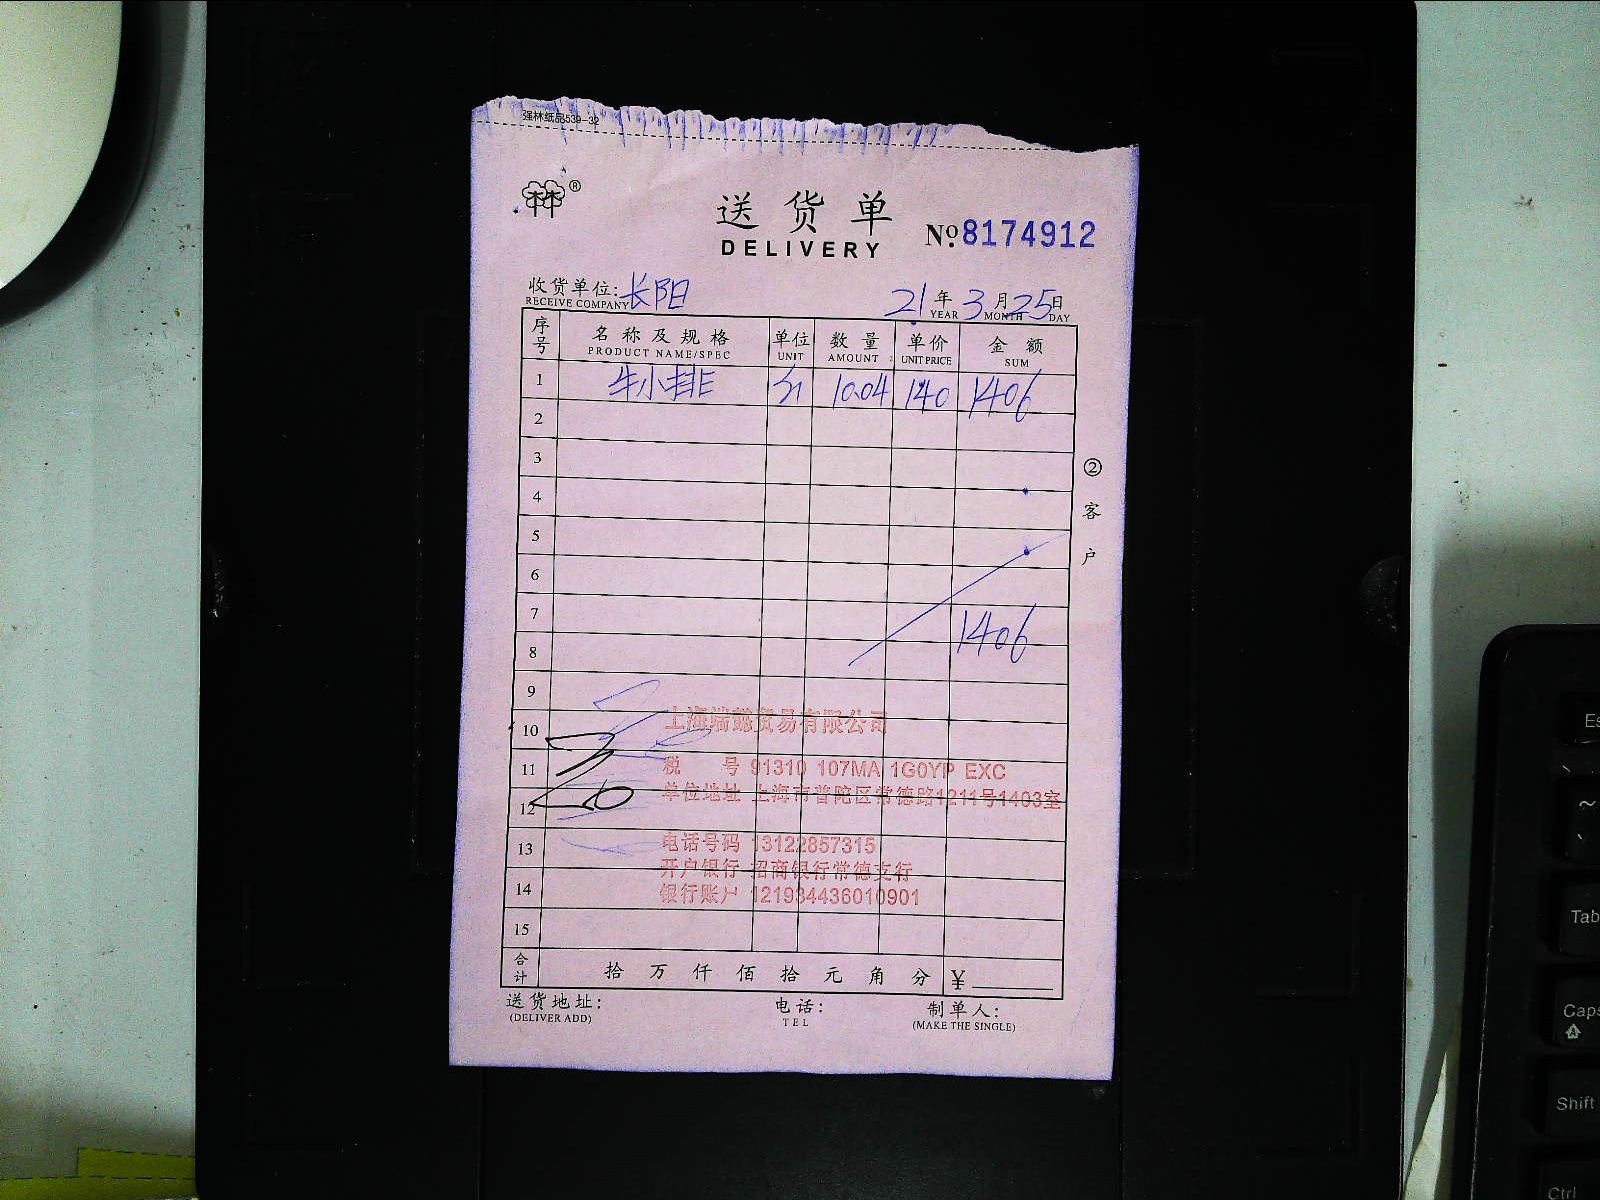 强林纸品539-32
林®
送货单
DELIVERY
№8174912
收货单位:长阳 21年3月25日
RECEIVE COMPANY YEAR MONTH DAY
序号 名称及规格 单位 数量 单价 金额
PRODUCT NAME/SPEC UNIT AMOUNT UNIT PRICE SUM
1 牛小排 10.04 140 1406
2
3
4
5
6
7 1406
8
9
10
11
12
13
14
15
②客户
上海端懿贸易有限公司
税 号 91310 107MA 1G0YP EXC
单位地址 上海市普陀区常德路1211号1403室
电话号码 13122857315
开户银行 招商银行常德支行
银行账户 121934436010901
合计 拾 万 仟 佰 拾 元 角 分 ¥
送货地址: 电话: 制单人:
(DELIVER ADD) TEL (MAKE THE SINGLE)
Es
~
Tab
Caps
Shift
Ctrl